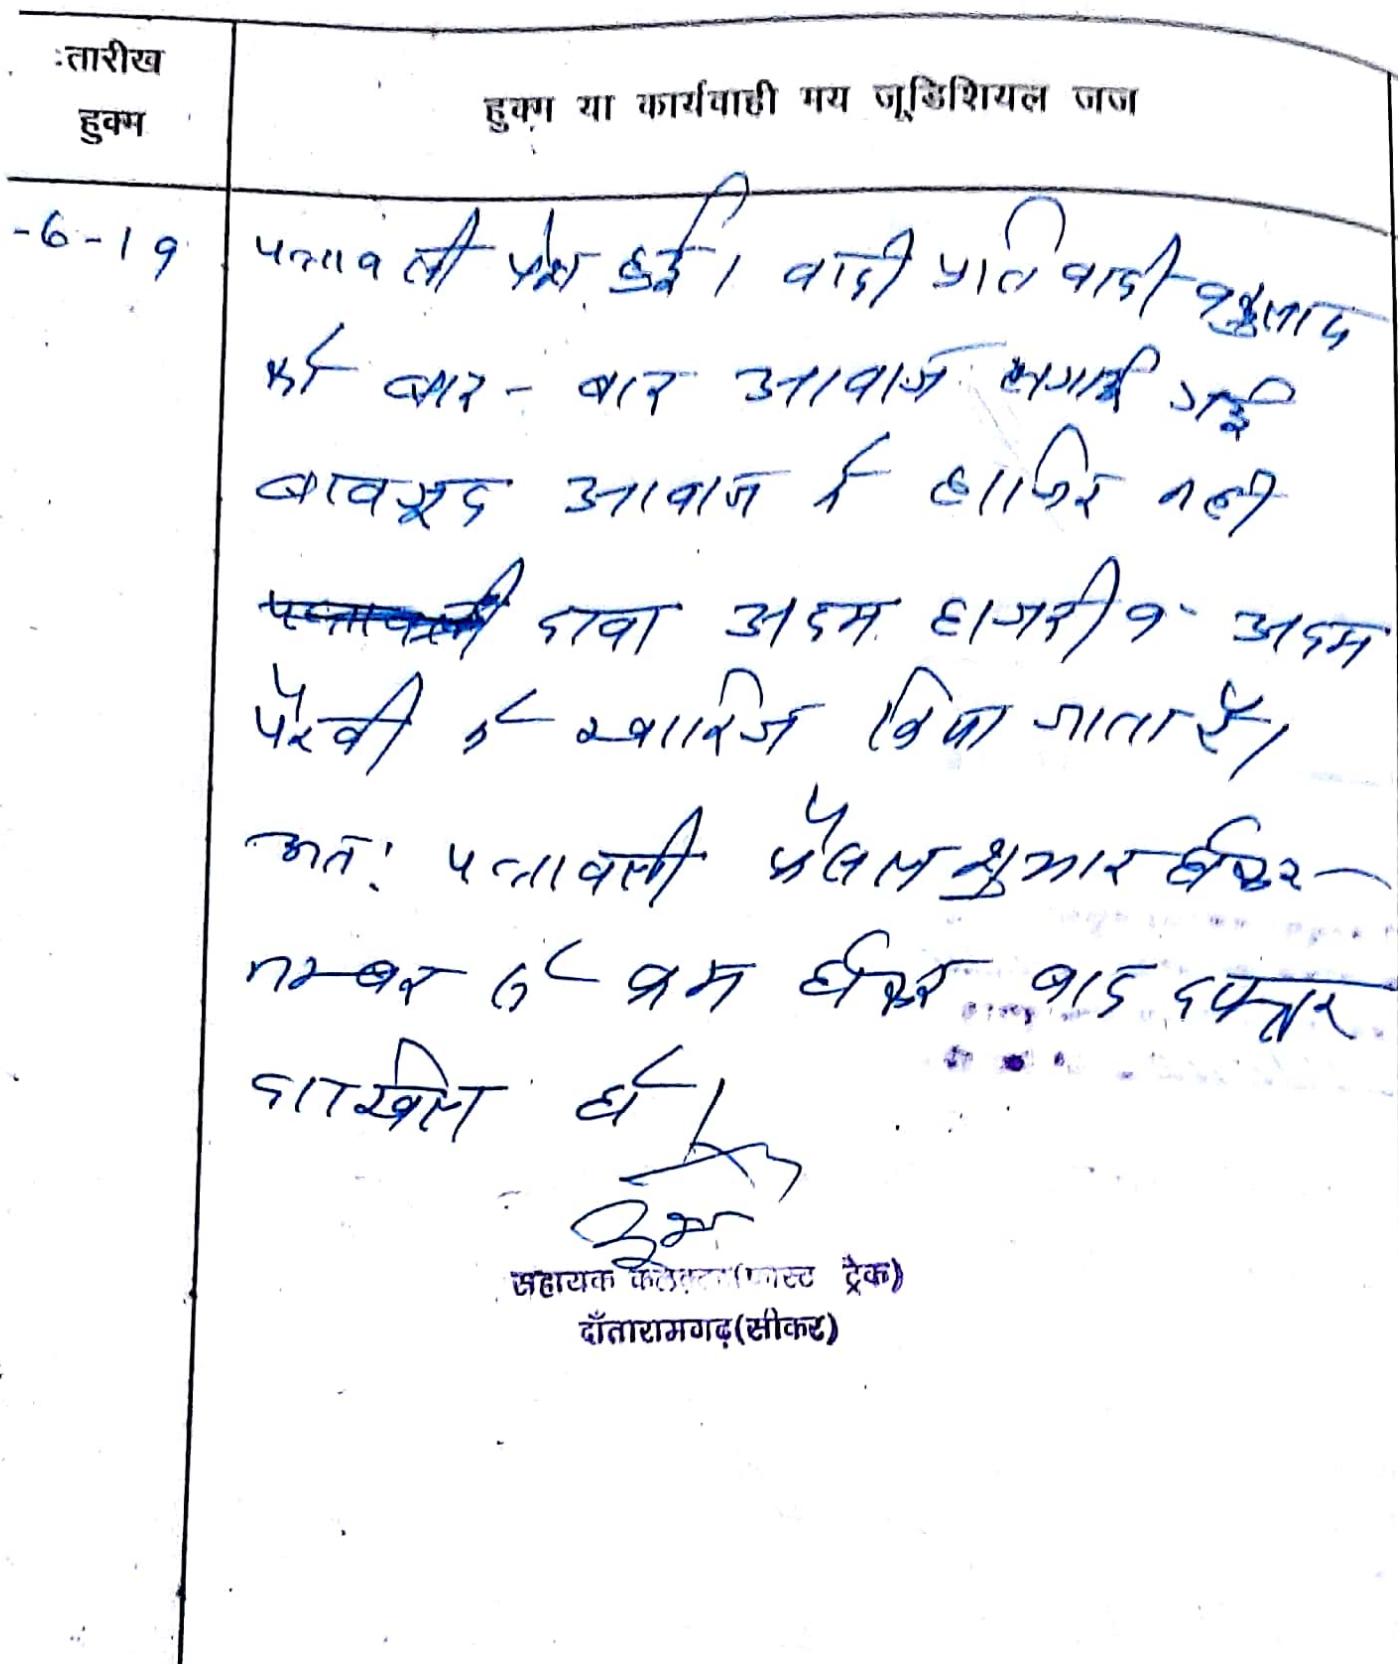 तारीख
हुक्म
हुक्म या कार्यवाही मय जूडिशियल जज
-6-19
पत्रावली पेश हुई। वादी प्रतिवादी
को बार-बार आवाज लगाई गई
बावजूद आवाज के हाजिर नही
दावा अदम हाजरी व अदम
पैरवी में खारिज किया जाता है।
अतः पत्रावली फैसल शुमार होकर
नम्बर से कम होकर बाद दफ्तर
दाखिल हो।
सहायक कलेक्टर(फास्ट ट्रेक)
दाँतारामगढ़(सीकर)